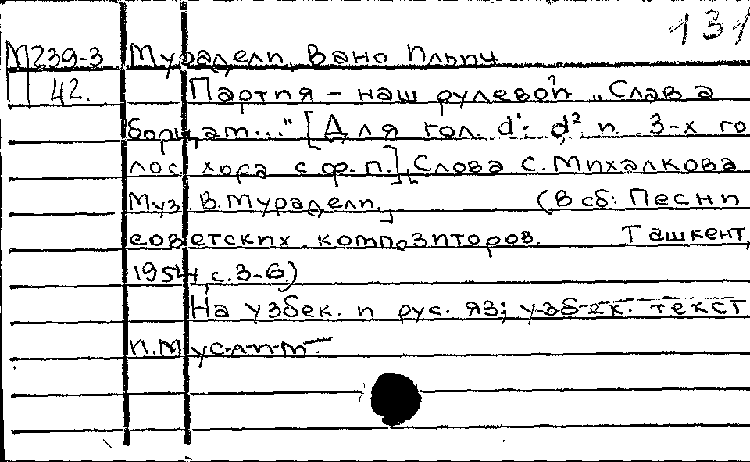 131
М239-3 Мурадели, Вано Ильич
П 42. Партия – наш рулевой „Слава
борцам..." [Для гол. d¹- d² и 3-х го
лос хора с ф.п.], Слова С. Михалкова
Муз. В. Мурадели. (В сб: Песни
советских композиторов. Ташкент,
1954, с. 3-6)
На узбек. и рус. яз; узбек. текст
П. Муслим.